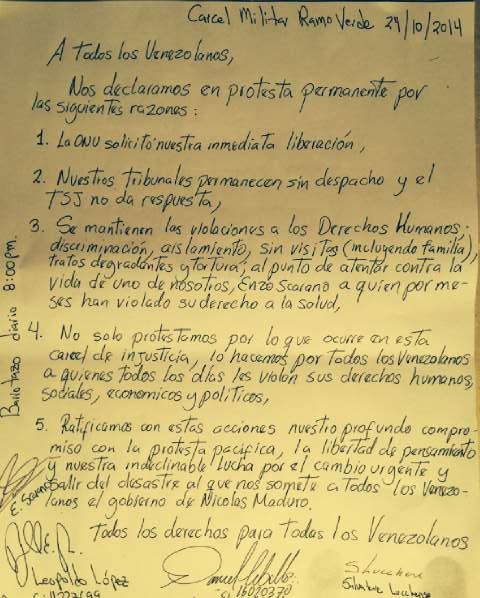 Carcel Militar Ramo Verde 29/10/2014
A Todos los Venezolanos,
Nos declaramos en protesta permanente por
las siguientes razones:
1. La ONU solicitó nuestra inmediata liberación,
2. Nuestros Tribunales permanecen sin despacho y el
TSJ no da respuesta,
3. Se mantienen las violaciones a los Derechos Humanos:
discriminación, aislamiento, sin visitas (incluyendo familia),
tratos degradantes y tortura; al punto de atentar contra la
vida de uno de nosotros, Enzo Scarano a quien por me-
ses han violado su derecho a la salud,
4. No solo protestamos por lo que ocurre en esta
carcel de injusticia, lo hacemos por todos los Venezolanos
a quienes todos los días les violan sus derechos humanos,
sociales, economicos y politicos,
5. Ratificamos con estas acciones nuestro profundo compro-
miso con la protesta pacifica, la libertad de pensamiento
y nuestra indeclinable lucha por el cambio urgente y
salir del desastre al que nos somete a Todos los Venezo-
lanos el gobierno de Nicolas Maduro.
Todos los derechos para Todos los Venezolanos
diario 8:00pm.
E. Scarano
Leopoldo López
CI 16020370